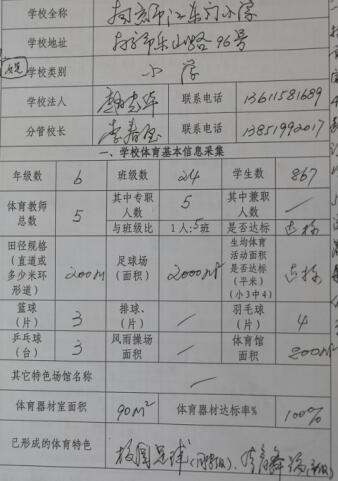 学校全称 南京市江东门小学
学校地址 南京市乐山路96号
学校类别 小学
学校法人 联系电话 13611581689
分管校长 李春 联系电话 13851992017
一、学校体育基本信息采集
年级数 6 班级数 24 学生数 867
体育教师总数 5 其中专职人数 5 其中兼职人数 /
与班级比 1人:5班 是否达标 达标
田径规格(直道或多少米环形道) 200m 足球场(面积) 2000m² 生均体育活动面积是否达标(平米)(小3中4) 达标
篮球(片) 3 排球、(片) / 羽毛球(片) 4
乒乓球(台) 3 风雨操场面积 / 体育馆面积 800m²
其它特色场馆名称 /
体育器材室面积 90m² 体育器材达标率% 100%
已形成的体育特色 校园足球